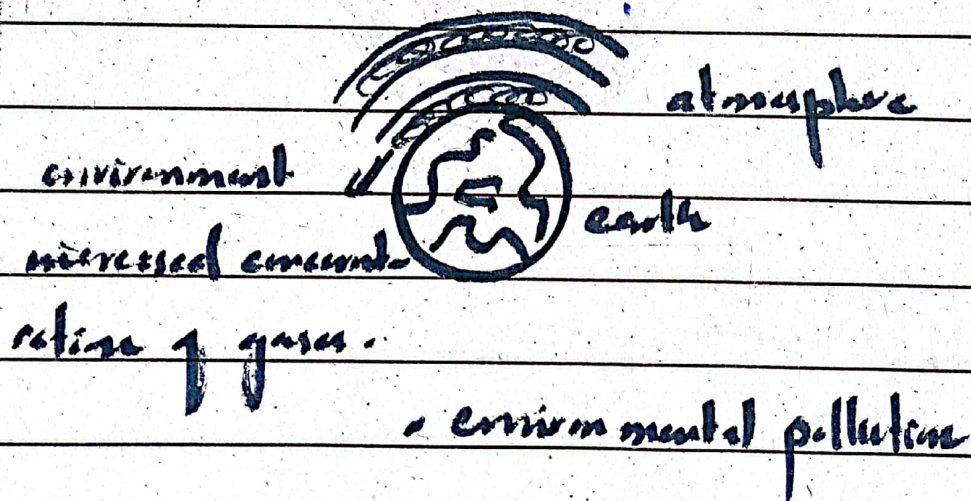 atmosphere
environment
earth
increased concent-
ration of gases.
• environmental pollution